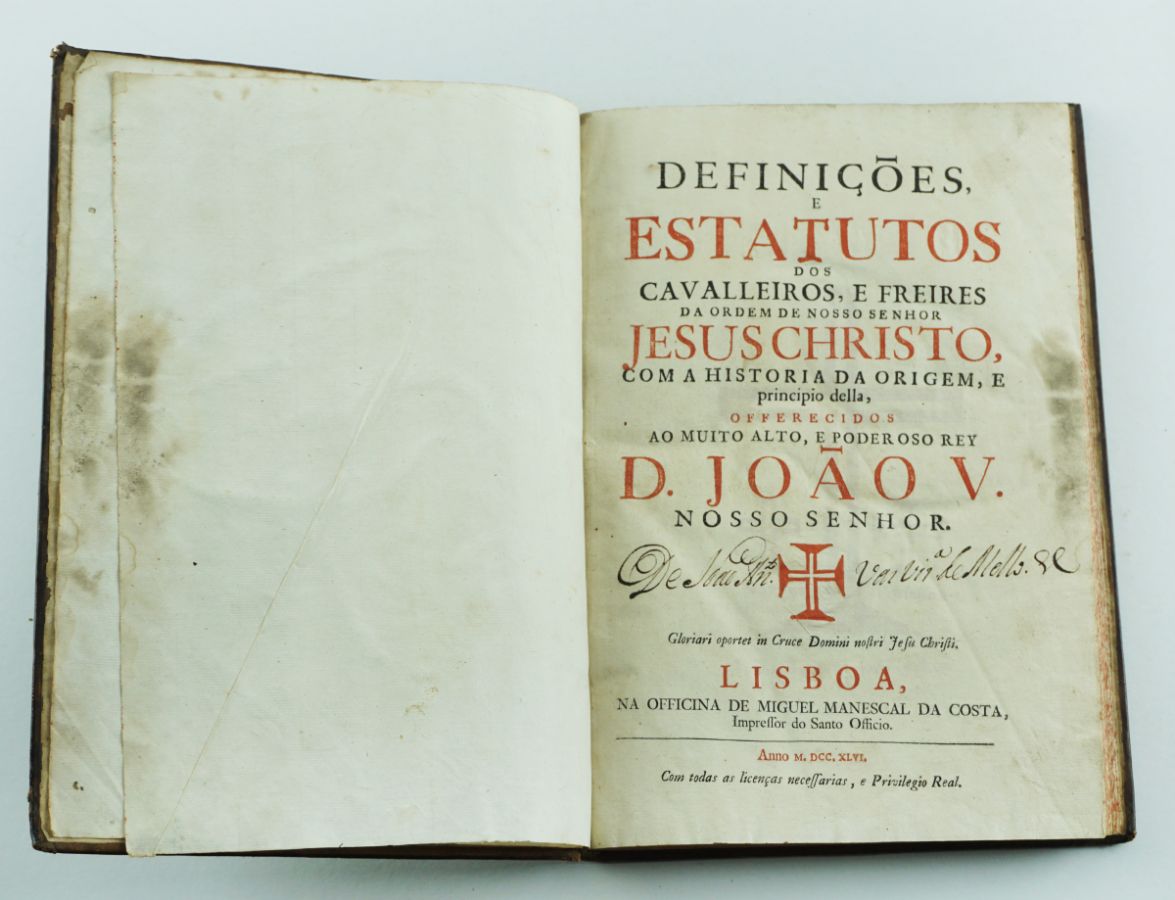 DEFINIÇÕES,
E
ESTATUTOS
DOS
CAVALLEIROS, E FREIRES
DA ORDEM DE NOSSO SENHOR
JESUS CHRISTO,
COM A HISTORIA DA ORIGEM, E
principio della,
OFFERECIDOS
AO MUITO ALTO, E PODEROSO REY
D. JOÃO V.
NOSSO SENHOR.
De de Mello. &c
Gloriari oportet in Cruce Domini noſtri Jeſu Chriſti.
LISBOA,
NA OFFICINA DE MIGUEL MANESCAL DA COSTA,
Impreſſor do Santo Officio.
Anno M. DCC. XLVI.
Com todas as licenças neceſſarias, e Privilegio Real.